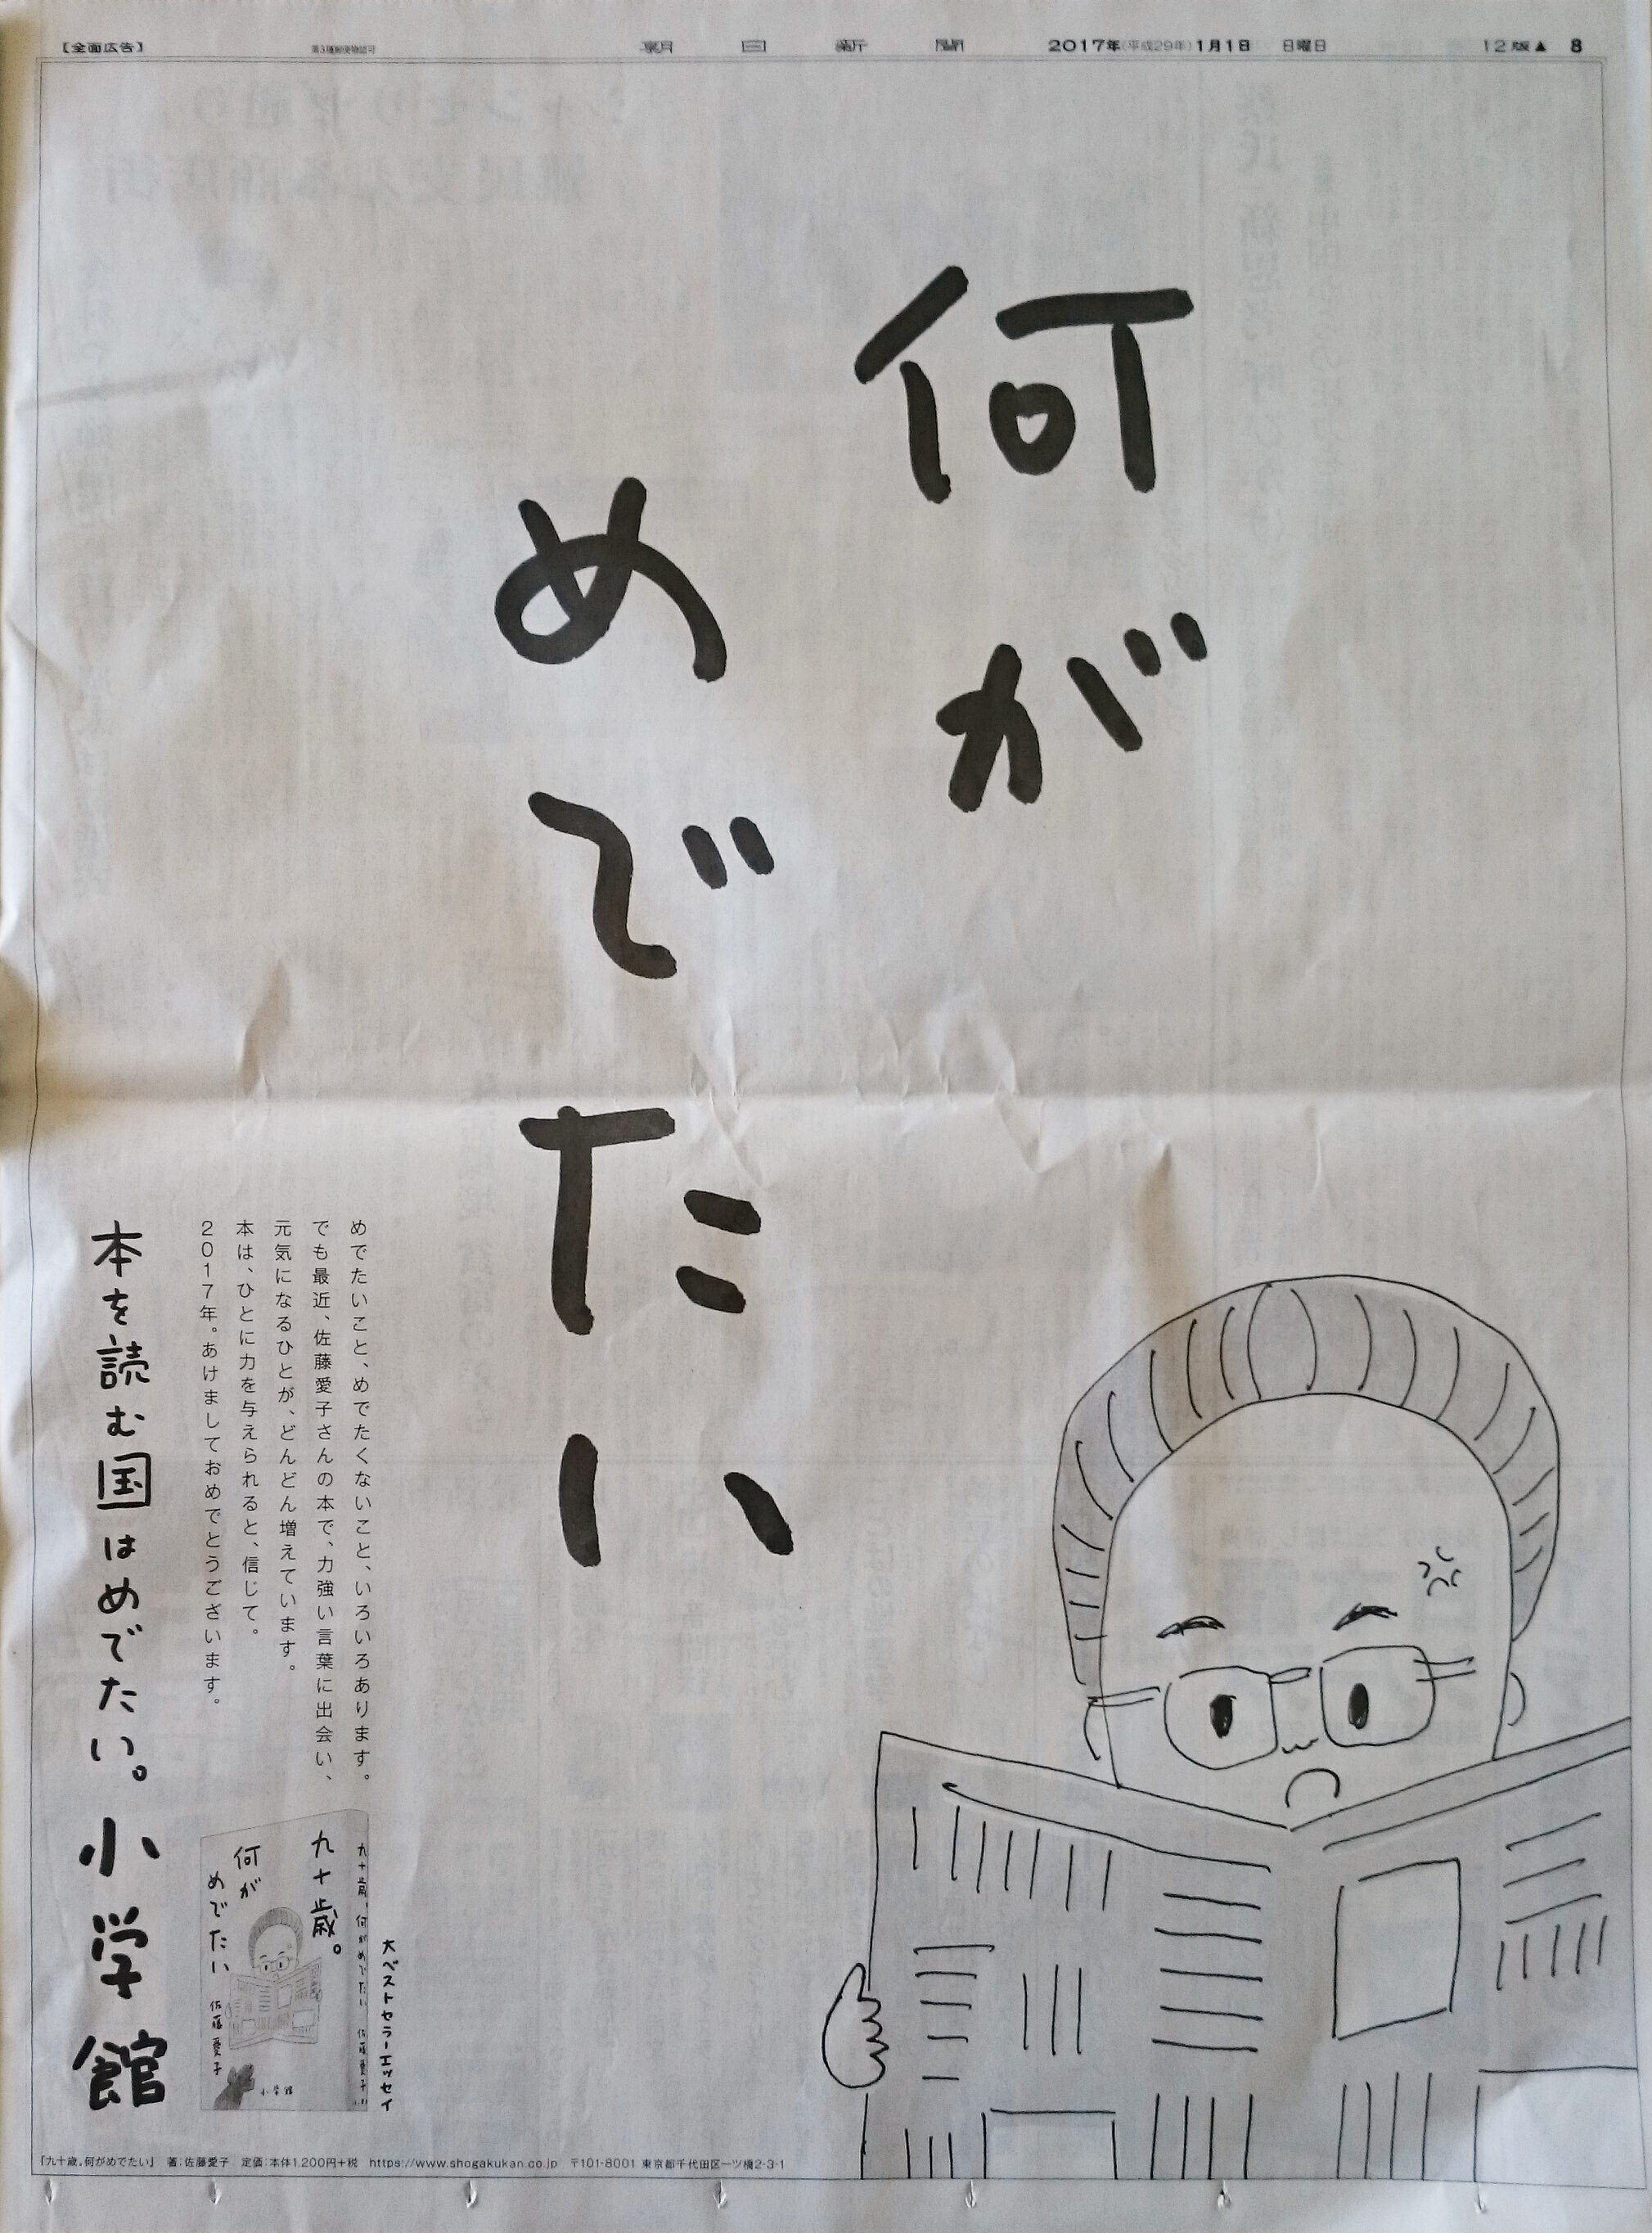 【全面広告】
第3種郵便物認可
朝日新聞
2017年(平成29年)1月1日 日曜日
12版▲ 8
何が
めでたい
めでたいこと、めでたくないこと、いろいろあります。
でも最近、佐藤愛子さんの本で、力強い言葉に出会い、
元気になるひとが、どんどん増えています。
本は、ひとに力を与えられると、信じて。
2017年。あけましておめでとうございます。
本を読む国はめでたい。小学館
大ベストセラーエッセイ
九十歳。何がめでたい 佐藤愛子
九十歳。
何が
めでたい
佐藤愛子
小学館
「九十歳。何がめでたい」 著:佐藤愛子 定価:本体1,200円+税 https://www.shogakukan.co.jp 〒101-8001 東京都千代田区一ツ橋2-3-1